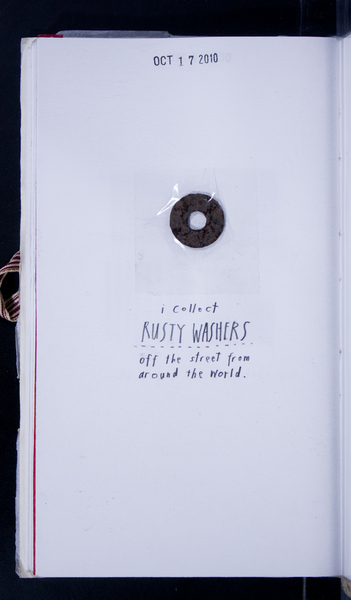 OCT 17 2010
i collect
RUSTY WASHERS
off the street from
around the world.